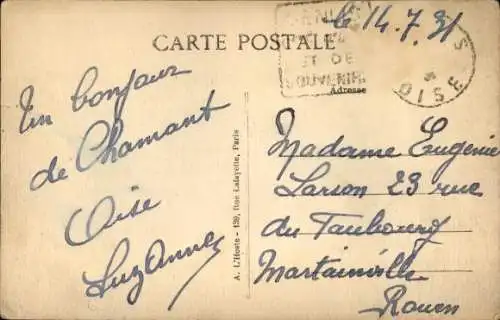 le 14.7.31
CARTE POSTALE
SENLIS
ET DE
SOUVENIR
OISE
Adresse
Un bonjour
de Chamant
Oise
Suzanne
A. L'Hoste - 139, Rue Lafayette, Paris
Madame Eugénie
Larson 23 rue
du Faubourg
Martainville
Rouen